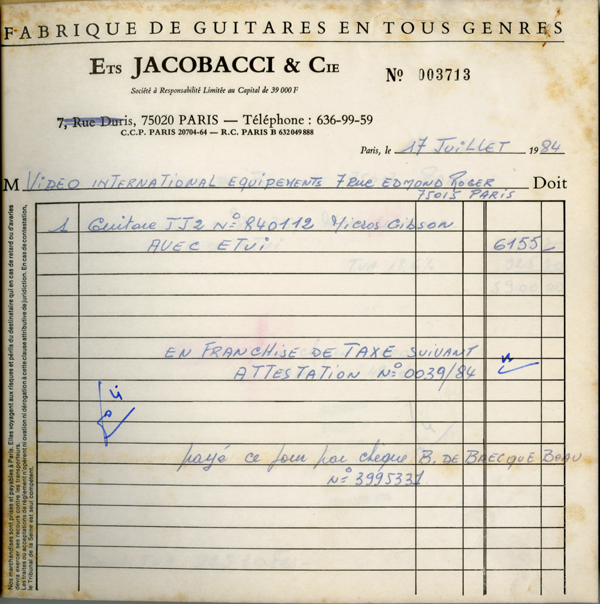 FABRIQUE DE GUITARES EN TOUS GENRES
ETS JACOBACCI & CIE
Nº 003713
Société à Responsabilité Limitée au Capital de 39 000 F
7, Rue Duris, 75020 PARIS — Téléphone : 636-99-59
C.C.P. PARIS 20704-64 — R.C. PARIS B 632049888
Paris, le 17 JUILLET 1984
M VIDEO INTERNATIONAL EQUIPEMENTS 7 RUE EDMOND ROGER Doit
75015 PARIS
1 Guitare JJ2 Nº 840112 Micros Gibson
AVEC ETUI 6155
EN FRANCHISE DE TAXE SUIVANT
ATTESTATION Nº 0039/84
payé ce jour par chèque B. DE BAECQUE BEAU
Nº 3995331
Nos marchandises sont prises et payables à Paris. Elles voyagent aux risques et périls du destinataire qui en cas de retard ou d'avaries
devra exercer ses recours contre les transporteurs.
Les traites ou acceptations de règlement n'opèrent ni novation ni dérogation à cette clause attributive de juridiction. En cas de contestation,
le Tribunal de la Seine est seul compétent.